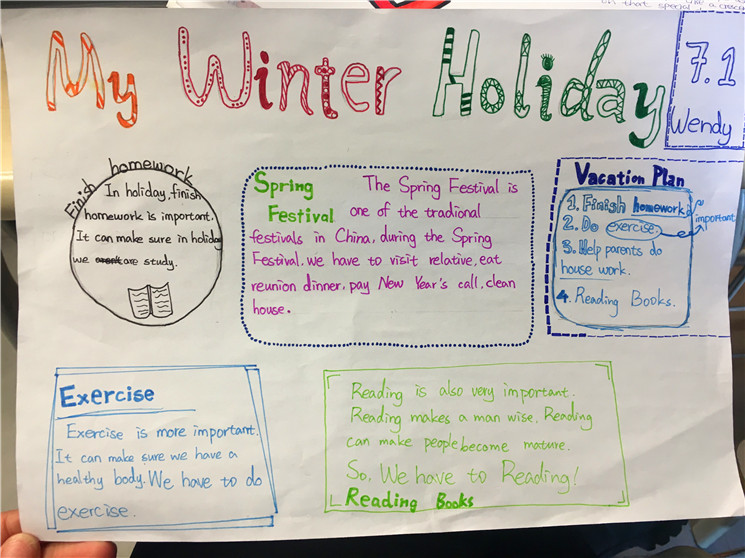 on that special
My Winter Holiday
7.1
Wendy
Finish homework
In holiday, finish
homework is important.
It can make sure in holiday
we are study.
Spring
Festival
The Spring Festival is
one of the tradional
festivals in China, during the Spring
Festival. we have to visit relative. eat
reunion dinner. pay New Year's call. clean
house.
Vacation Plan
1. Finish homework
2. Do exercise.
important
3. Help parents do
house work.
4. Reading Books.
Exercise
Exercise is more important.
It can make sure we have a
healthy body. We have to do
exercise.
Reading is also very important.
Reading makes a man wise. Reading
can make people become mature.
So, We have to Reading!
Reading Books